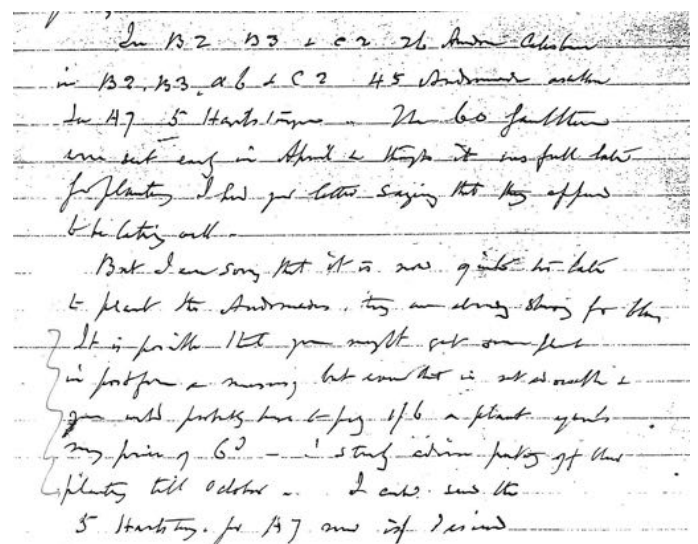 In B2 B3 & C2 26 Andro
in B2, B3, a6 & C2 45 Andromeda
In A7 5 Hartstongue . The 60 Gaultheria
were sent early in April & though it was full late
for planting I had your letter saying that they appear
to be taking well .
But I am sorry that it is now quite too late
to plant the Andromedas , they are already
It is possible that you might get some plants
in a nursery but even that is not advisable &
you would probably have to pay 1/6 a plant against
my price of 6d - I strongly advise putting off this
planting till October . I could send the
5 Hartstong. for A7 now if desired